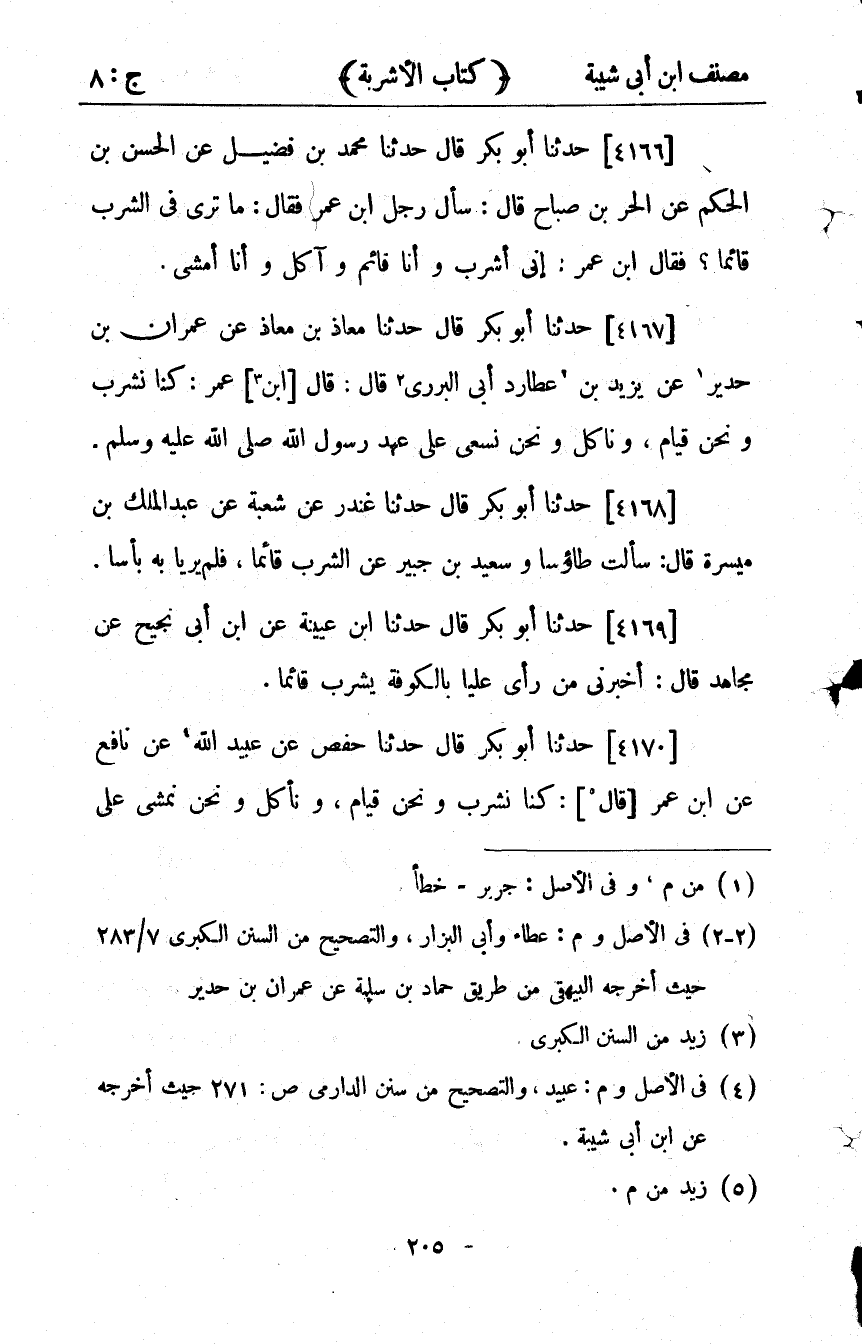 مصنف ابن أبى شيبة ﴿ كتاب الأشربة ﴾ ج : ٨
[٤١٦٦] حدثنا أبو بكر قال حدثنا محمد بن فضيـــل عن الحسن بن
الحكم عن الحر بن صباح قال : سأل رجل ابن عمر فقال : ما ترى فى الشرب
قائما ؟ فقال ابن عمر : إنى أشرب و أنا قائم و آكل و أنا أمشى .
[٤١٦٧] حدثنا أبو بكر قال حدثنا معاذ بن معاذ عن عمران بن
حدير١ عن يزيد بن ٢عطارد أبى البزرى٢ قال : قال [ابن٣] عمر : كنا نشرب
و نحن قيام ، و ناكل و نحن نسعى على عهد رسول الله صلى الله عليه وسلم .
[٤١٦٨] حدثنا أبو بكر قال حدثنا غندر عن شعبة عن عبدالملك بن
ميسرة قال: سألت طاؤسا و سعيد بن جبير عن الشرب قائما ، فلم يريا به بأسا .
[٤١٦٩] حدثنا أبو بكر قال حدثنا ابن عيينة عن ابن أبى نجيح عن
مجاهد قال : أخبرنى من رأى عليا بالكوفة يشرب قائما .
[٤١٧٠] حدثنا أبو بكر قال حدثنا حفص عن عبيد الله٤ عن نافع
عن ابن عمر [قال٥] : كنا نشرب و نحن قيام ، و نأكل و نحن نمشى على
(١) من م ، و فى الأصل : جرير - خطأ .
(٢-٢) فى الأصل و م : عطاء وأبى البزار ، والتصحيح من السنن الكبرى ٧/٢٨٣
حيث أخرجه البيهقى من طريق حماد بن سلمة عن عمران بن حدير .
(٣) زيد من السنن الكبرى .
(٤) فى الأصل و م : عبيد ، والتصحيح من سنن الدارمى ص : ٢٧١ حيث أخرجه
عن ابن أبى شيبة .
(٥) زيد من م .
- ٢٠٥